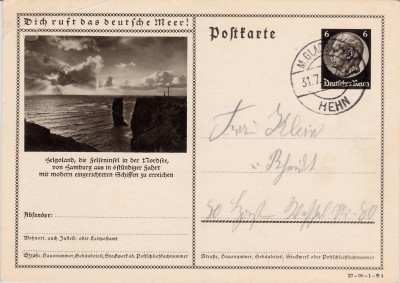 Dich ruft das deutsche Meer!
Postkarte
6 6
Deutsches Reich
M.GLAD
31.7.
HEHN
Helgoland, die Felseninsel in der Nordsee,
von Hamburg aus in 6stündiger Fahrt
mit modern eingerichteten Schiffen zu erreichen
Frau Klein
Absender:
Wohnort, auch Zustell- oder Leitpostamt
Straße, Hausnummer, Gebäudeteil, Stockwerk od. Postschließfachnummer
Straße, Hausnummer, Gebäudeteil, Stockwerk oder Postschließfachnummer